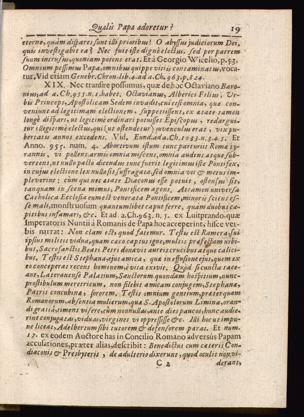 Qualis Papa adoretur? 19
eterne, quàm dispares sunt illi prioribus! O abyssus judiciorum Dei,
quis investigabit ea? Nec fuit iste dignè electus, sed per patrem
suum intrusus, quoniam potens erat. Et à Georgio Wicelio, p. 53.
Omnium pessimus Papa, omnibus turpe vitiis contaminatus, voca-
tur, Vid etiam Genebr. Chron. lib. 4. ad a. Ch. 963. p. 524.
XIX. Nec transire possumus, quæ de hoc Octaviano Baro-
nius, ad a. Ch. 955. n. 1. habet. Octavianus, Alberici Filius, Ur-
bis Princeps, Apostolicam Sedem invadit, cui etsi omnia, quæ con-
veniunt ad legitimam electionem, suppetissent, ex ætate tamen
longè dispari, ut legimè ordinari potuisset Episcopus, redargui-
tur illegimè electus, qui, ut ostendetur, invenculus erat, vix pu-
bertatis annos excedens. Vid. Eund. ad a. Ch. 1033. n. 4. 5. Et
Anno. 955. num. 4. Abortivum istum tunc parturiit Roma ty-
rannis, vi pollens armis omnia miscens, omnia audens atque sub-
vertens, ut nullo pacto dicendus tunc fuerit legimus iste Pontifex,
in cujus electione lex nulla sit suffragata, sed omnia vis & metus im-
pleverint; cum qui nec ætate Diaconus esse potuit, ostensus sit,
tanquam in scena mimus, Pontificem agens, Attamen universa
Catholica Ecclesia eum est venerata Pontificem, minoris faciens es-
se malum, monstruosum quantumlibet caput ferre, quàm duobus ca-
pitibus infamari, &c. Et ad a. Ch. 963. n. 5. ex Luitprando, quæ
Imperatoris Nuntii à Romanis de Papa hoc acceperint, hisce ver-
bis narrat: Non clam est; quod fatemur. Testis est Raineri, sui
ipsius militis vidua, quam cæco captus igne, multis præfessam urbi-
bus, Sacrosanctis Beati Petri donavit aureis crucibus atque calici-
bus. Testis est Stephana, ejus amica, quæ in effusione, quem ex
eo conceperat recens hominem à vita exivit. Quod si cuncta tace-
ant, Lateranense Palatium, Sanctorum quondam hospitium, nunc
prostibulum meretricum, non silebit amicam conjugem, Stephanæ,
Patris concubinæ, sororem. Testis omnium gentium, præter quam
Romanorum, absentia mulierum, quæ S. Apostolorum Limina, oran-
di gratia, timent visere, cum nonnullas ante dies paucos, hunc audie-
rint conjugatas, viduas, virgines vi oppressisse &c. Illi hoc ut impu-
nè liceat, Adelbertum sibi tutorem & defensorem parat. Et num.
17. ex eodem Auctore has in Concilio Romano adversus Papam
accusationes, præter alias, describit: Benedictus cum cæteris Con-
diaconis & Presbyteris, de adulterio dixerunt, quod oculis non vi-
C 2 derant,